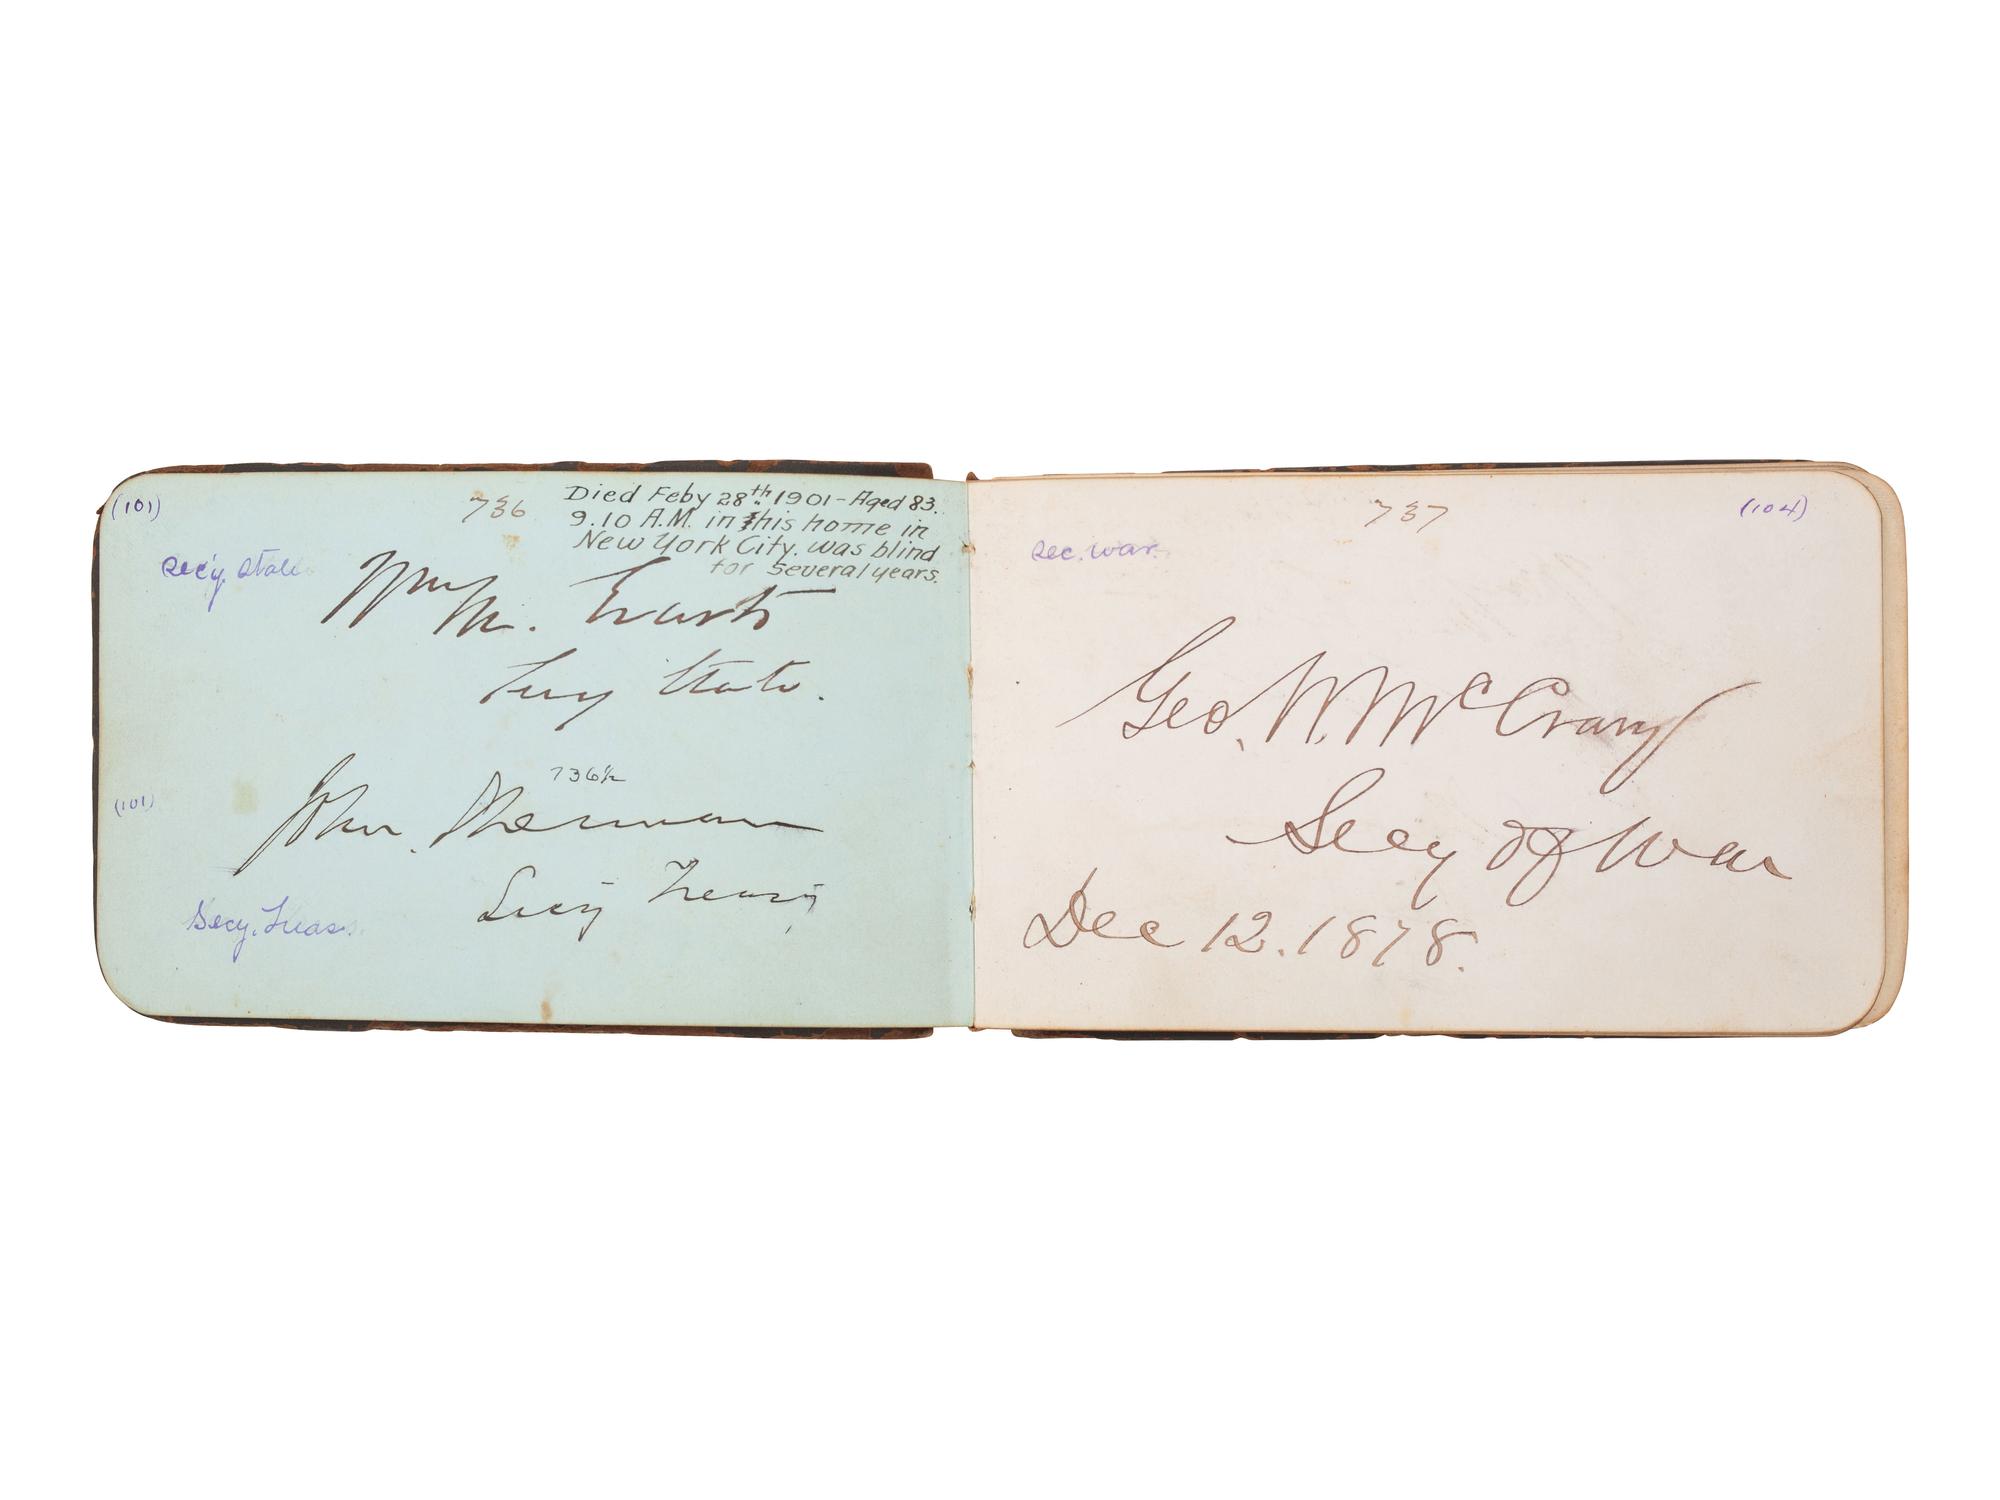 (101)
736
Died Feby 28th 1901 - Aged 83.
9.10 A.M. in his home in
New York City. was blind
for several years.
Sec'y. State
Wm M. Evarts
Secy State.
736½
(101)
John Sherman
Secy Treasy
Secy. Treas.
737
(104)
Sec. War.
Geo. W. McCrary
Secy of War
Dec 12. 1878.